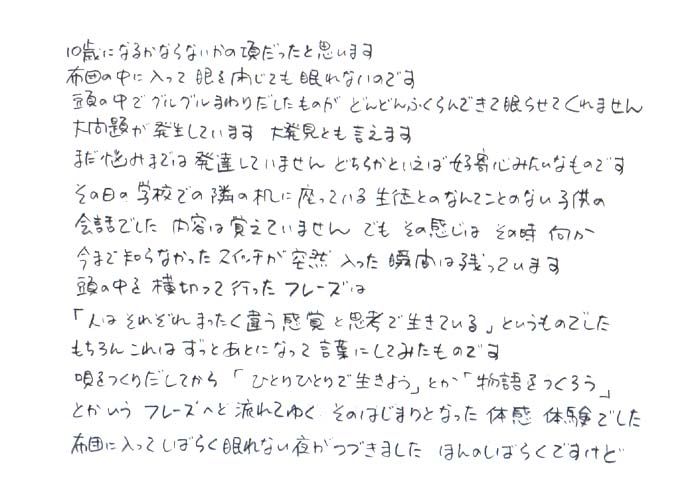 10歳になるかならないかの頃だったと思います
布団の中に入って 眼を閉じても 眠れないのです
頭の中で グルグルまわりだしたものが どんどんふくらんできて眠らせてくれません
大問題が発生しています 大発見とも言えます
まだ悩みまでは 発達していません どちらかといえば 好奇心みたいなものです
その日の学校での 隣の机に座っている 生徒とのなんてことのない 子供の
会話でした 内容は覚えていません でも その感じは その時 何か
今まで知らなかった スイッチが 突然 入った 瞬間は残っています
頭の中を 横切って行った フレーズは
「人は それぞれ まったく違う 感覚と思考で生きている」というものでした
もちろん これは ずっとあとになって 言葉にしてみたものです
唄をつくりだしてから 「ひとりひとりで生きよう」とか「物語をつくろう」
とかいう フレーズへと 流れてゆく そのはじまりとなった 体感 体験でした
布団に入って しばらく眠れない夜がつづきました ほんのしばらくですけど